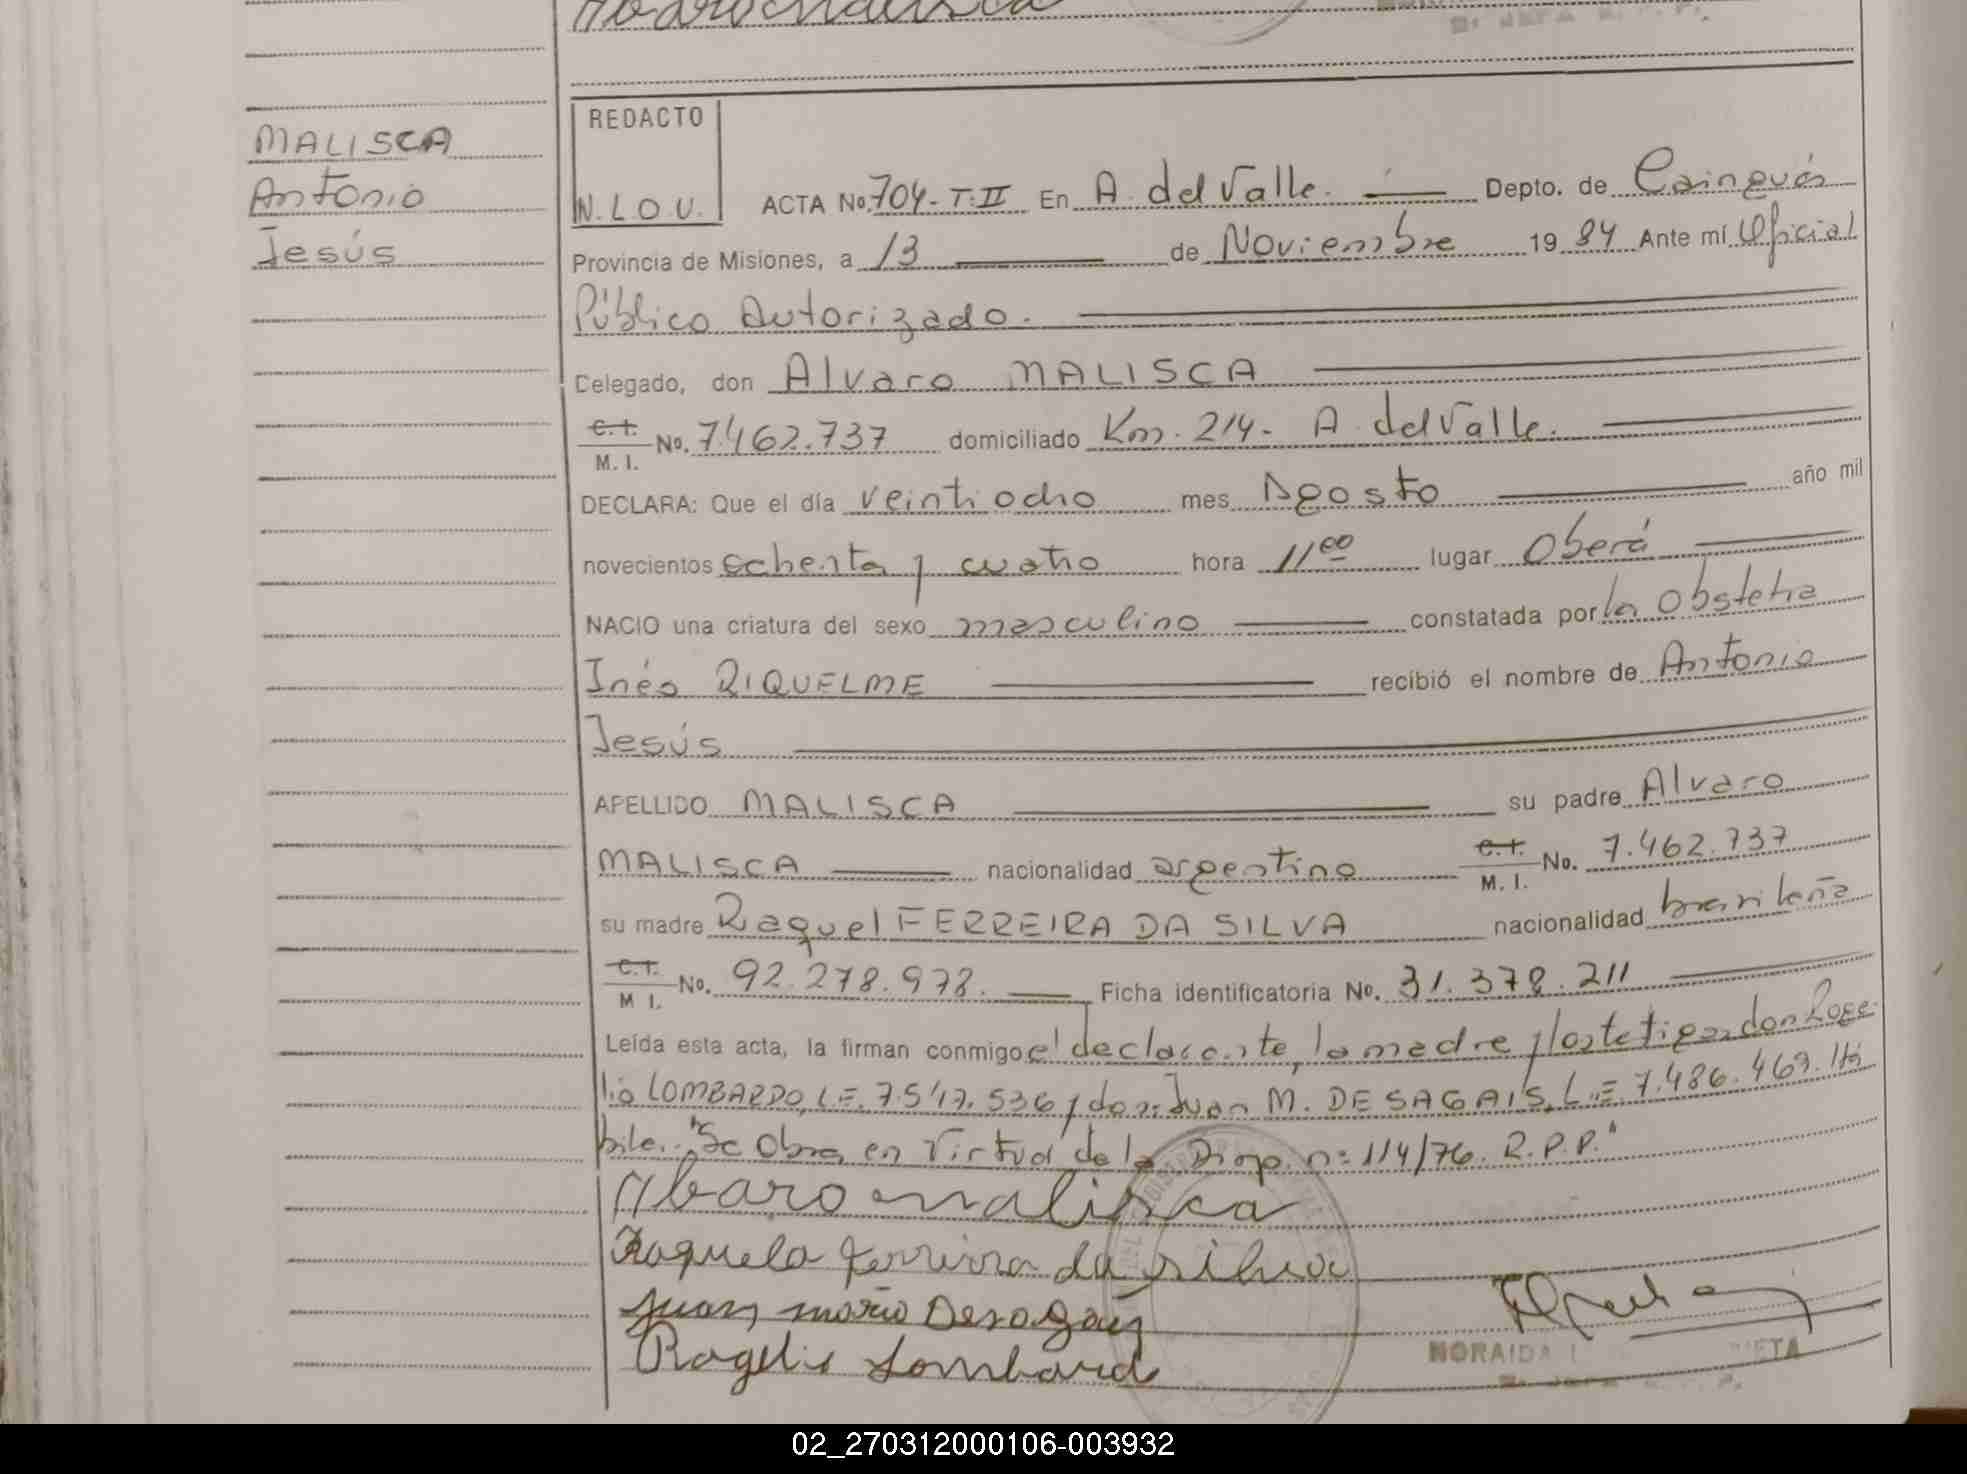 MALISCA
Antonio
Jesús
REDACTO
N.L.O.V.
ACTA No. 704-T:II En A. del Valle. Depto. de Cainguás
Provincia de Misiones, a 13 de Noviembre 19 84 Ante mí Oficial
Público Autorizado.
Celegado, don Alvaro MALISCA
C.I. M.I. No. 7.462.737 domiciliado Km. 214- A. del Valle.
DECLARA: Que el día veintiocho mes Agosto año mil
novecientos ochenta y cuatro hora 11 00 lugar Oberá
NACIO una criatura del sexo masculino constatada por la Obstetra
Inés RIQUELME recibió el nombre de Antonio
Jesús
APELLIDO MALISCA su padre Alvaro
MALISCA nacionalidad argentino C.I. M.I. No. 7.462.737
su madre Raquel FERREIRA DA SILVA nacionalidad brasileña
C.I. M I. No. 92.278.978. Ficha identificatoria No. 31.378.211
Leída esta acta, la firman conmigo el declarante, la madre y los testigos don Roge-
lio LOMBARDO, L.E. 7.547.536 y don Juan M. DESAGAIS, L.E. 7.486.469. Há
bile. "Se Obra en Virtud de la Disp. nº 114/76. R.P.P."
Albaro malisca
Raquela ferreira da silva
Juan mario Desagais
Rogelio Lombard
NORAIDA
02_270312000106-003932